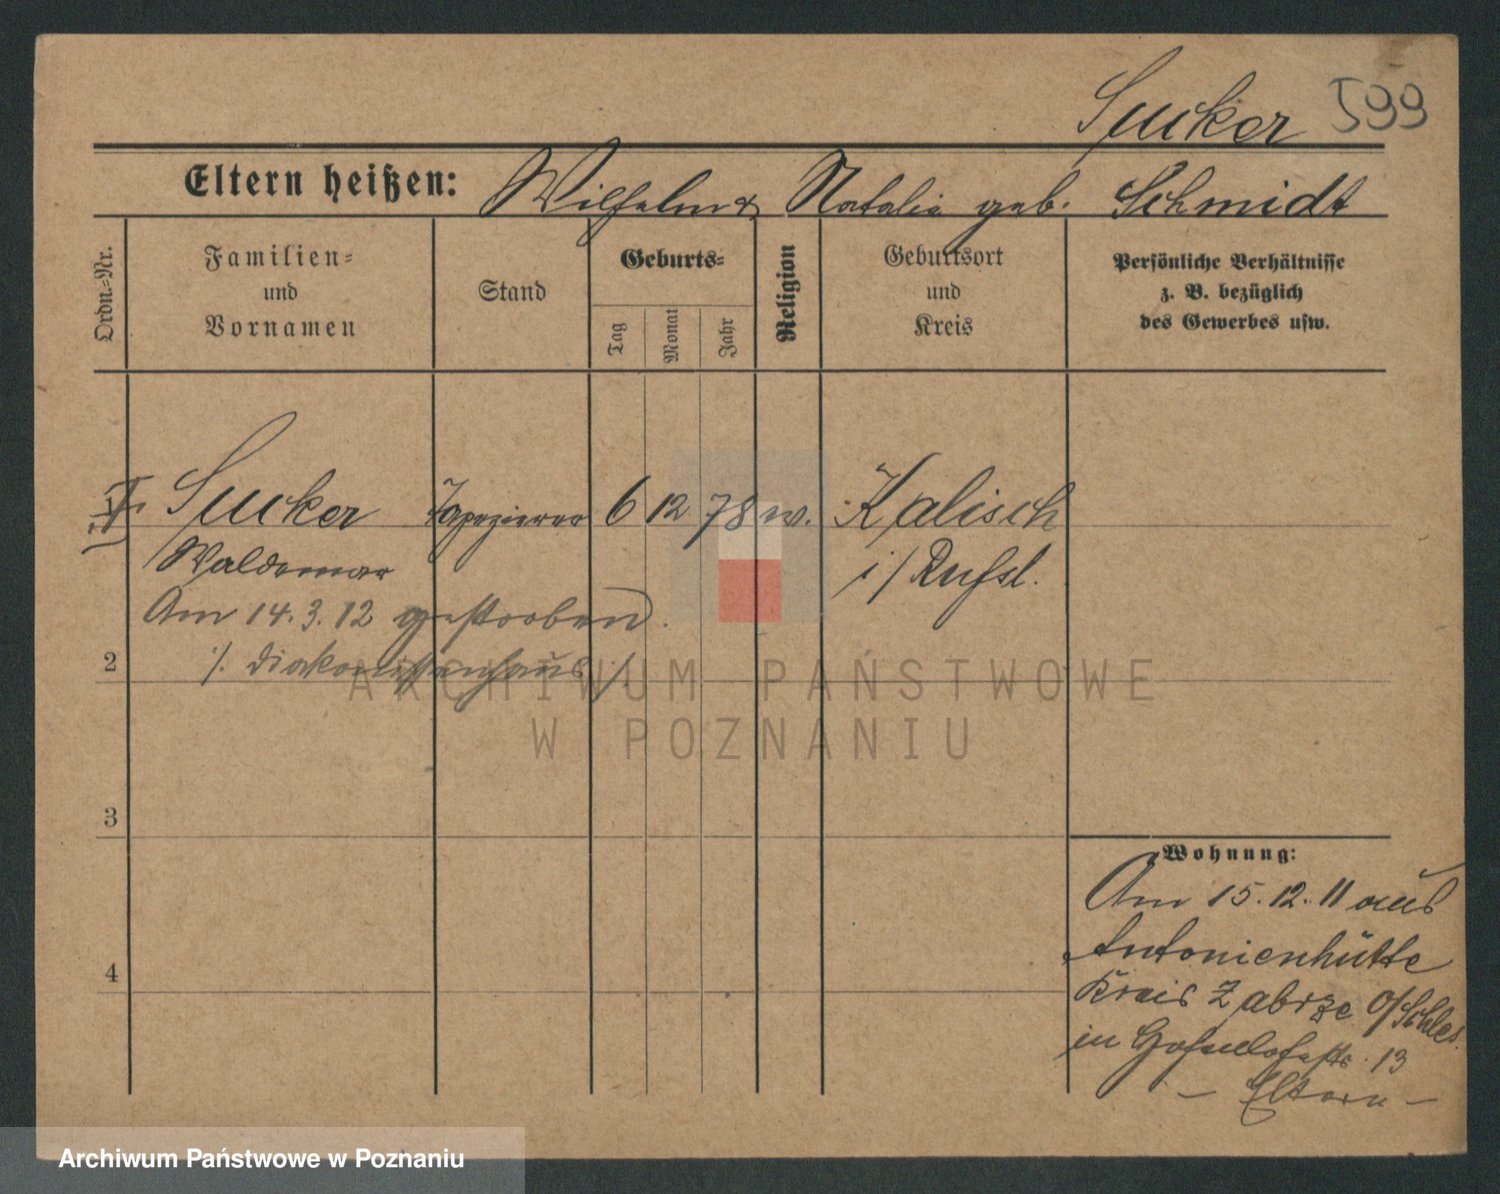 Sucker 599
Eltern heißen: Wilhelm & Natalie geb. Schmidt
Ordn.-Nr.
Familien-
und
Vornamen
Stand
Geburts-
Tag
Monat
Jahr
Religion
Geburtsort
und
Kreis
Persönliche Verhältnisse
z. B. bezüglich
des Gewerbes usw.
1 Sucker Tapezierer 6 12 78 w. Kalisch
Waldemar i/Rußl.
Am 14.3.12 gestorben.
2 ·/. Diakonissenhaus ·/.
3
4
Wohnung:
Am 15.12.11 aus
Antonienhütte
Kreis Zabrze O/Schles.
in 13
– Eltern –
ARCHIWUM PAŃSTWOWE
W POZNANIU
Archiwum Państwowe w Poznaniu